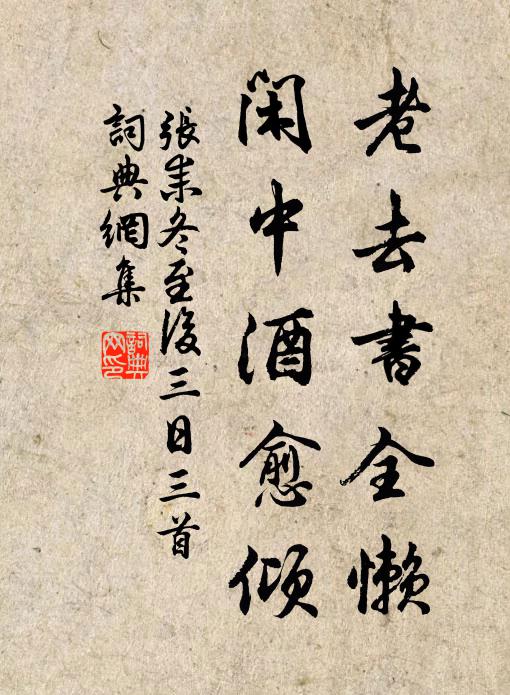 老去書全懶
閑中酒愈傾
張耒冬至後三日三首
詞典網集
詞典網印